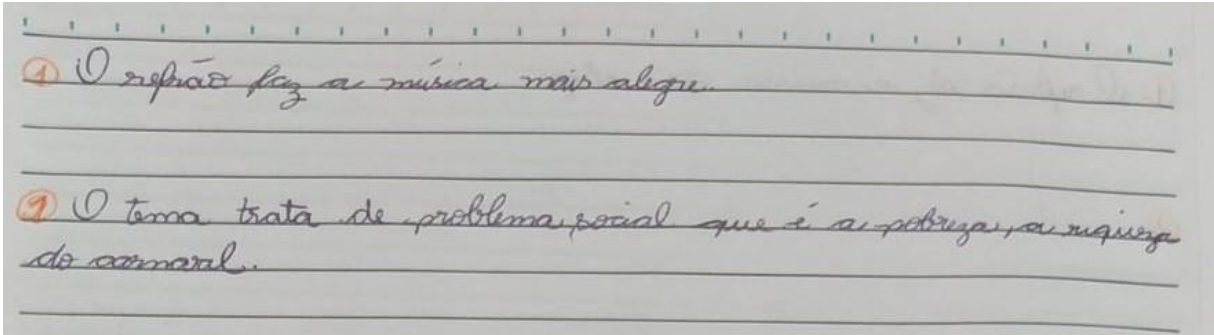 1 O refrão faz a música mais alegre.
9 O tema trata de problema social que é a pobreza, a riqueza
do carnaval.